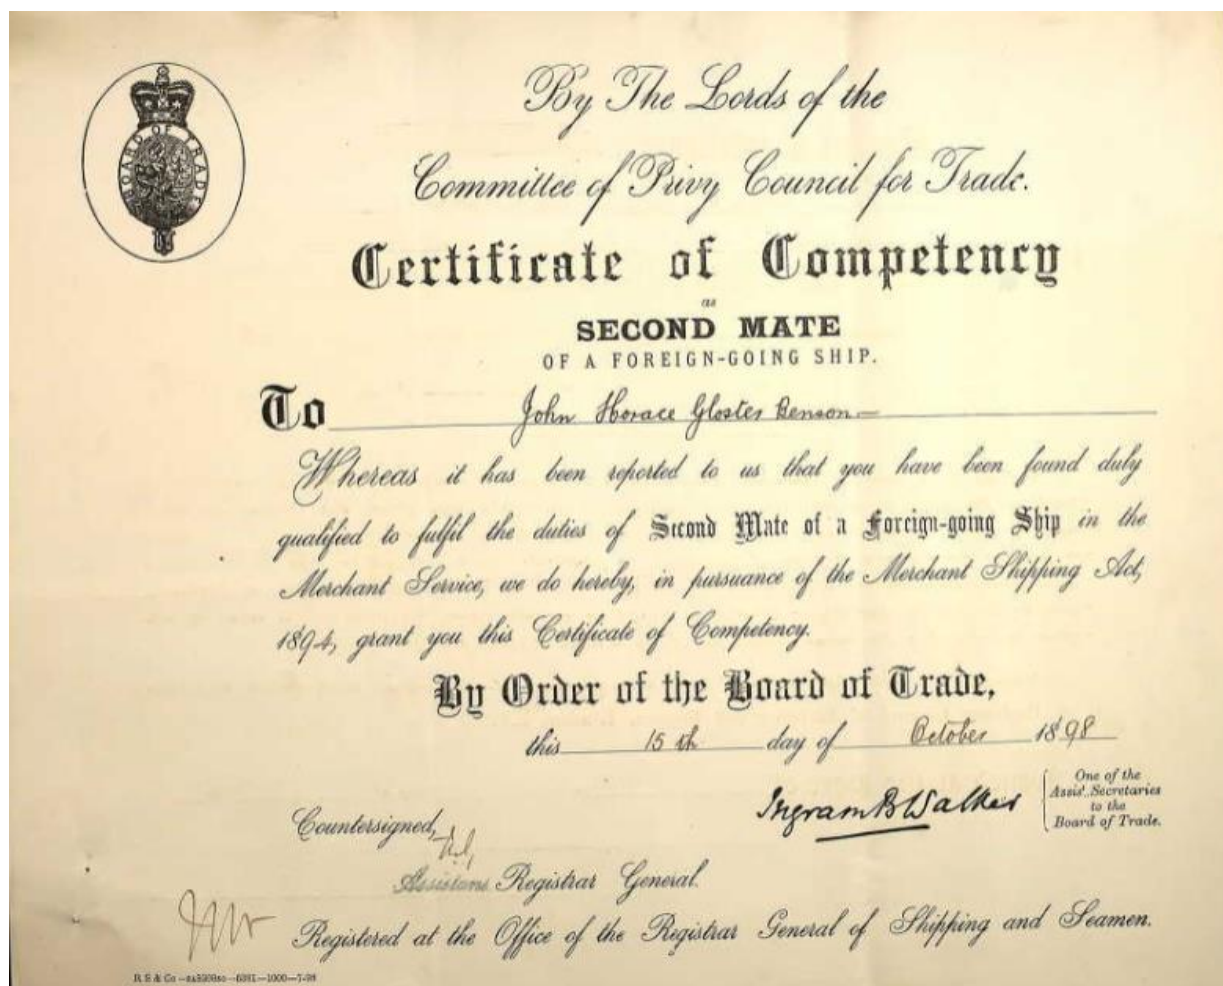 BOARD OF TRADE
By The Lords of the
Committee of Privy Council for Trade.
Certificate of Competency
as
SECOND MATE
OF A FOREIGN-GOING SHIP.
To John Horace Gloster Benson
Whereas it has been reported to us that you have been found duly
qualified to fulfil the duties of Second Mate of a Foreign-going Ship in the
Merchant Service, we do hereby, in pursuance of the Merchant Shipping Act,
1894, grant you this Certificate of Competency.
By Order of the Board of Trade,
this 15th day of October 1898
Ingram B Walker
One of the
Assist. Secretaries
to the
Board of Trade.
Countersigned,
Assistant Registrar General.
Registered at the Office of the Registrar General of Shipping and Seamen.
R S & Co